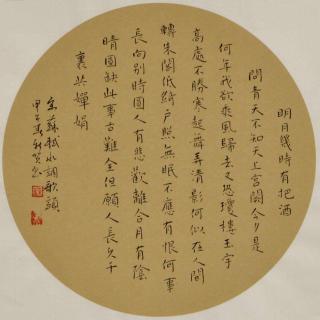 明月幾時有把酒
問青天不知天上宮闕今夕是
何年我欲乘風歸去又恐瓊樓玉宇
高處不勝寒起舞弄清影何似在人間
轉朱閣低綺戶照無眠不應有恨何事
長向別時圓人有悲歡離合月有陰
晴圓缺此事古難全但願人長久千
里共嬋娟
宋蘇軾水調歌頭
甲午